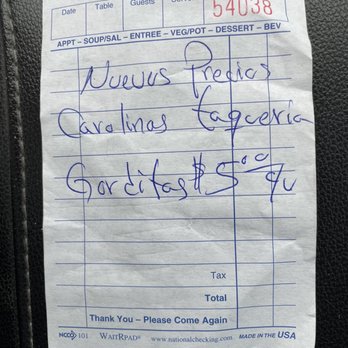 Date Table Guests
54038
APPT - SOUP/SAL - ENTREE - VEG/POT - DESSERT - BEV
Nuevos Precios
Carolinas taqueria
Gorditas $5.00/qu
Tax
Total
Thank You – Please Come Again
NCCO 101 WAITRPAD® www.nationalchecking.com MADE IN THE USA